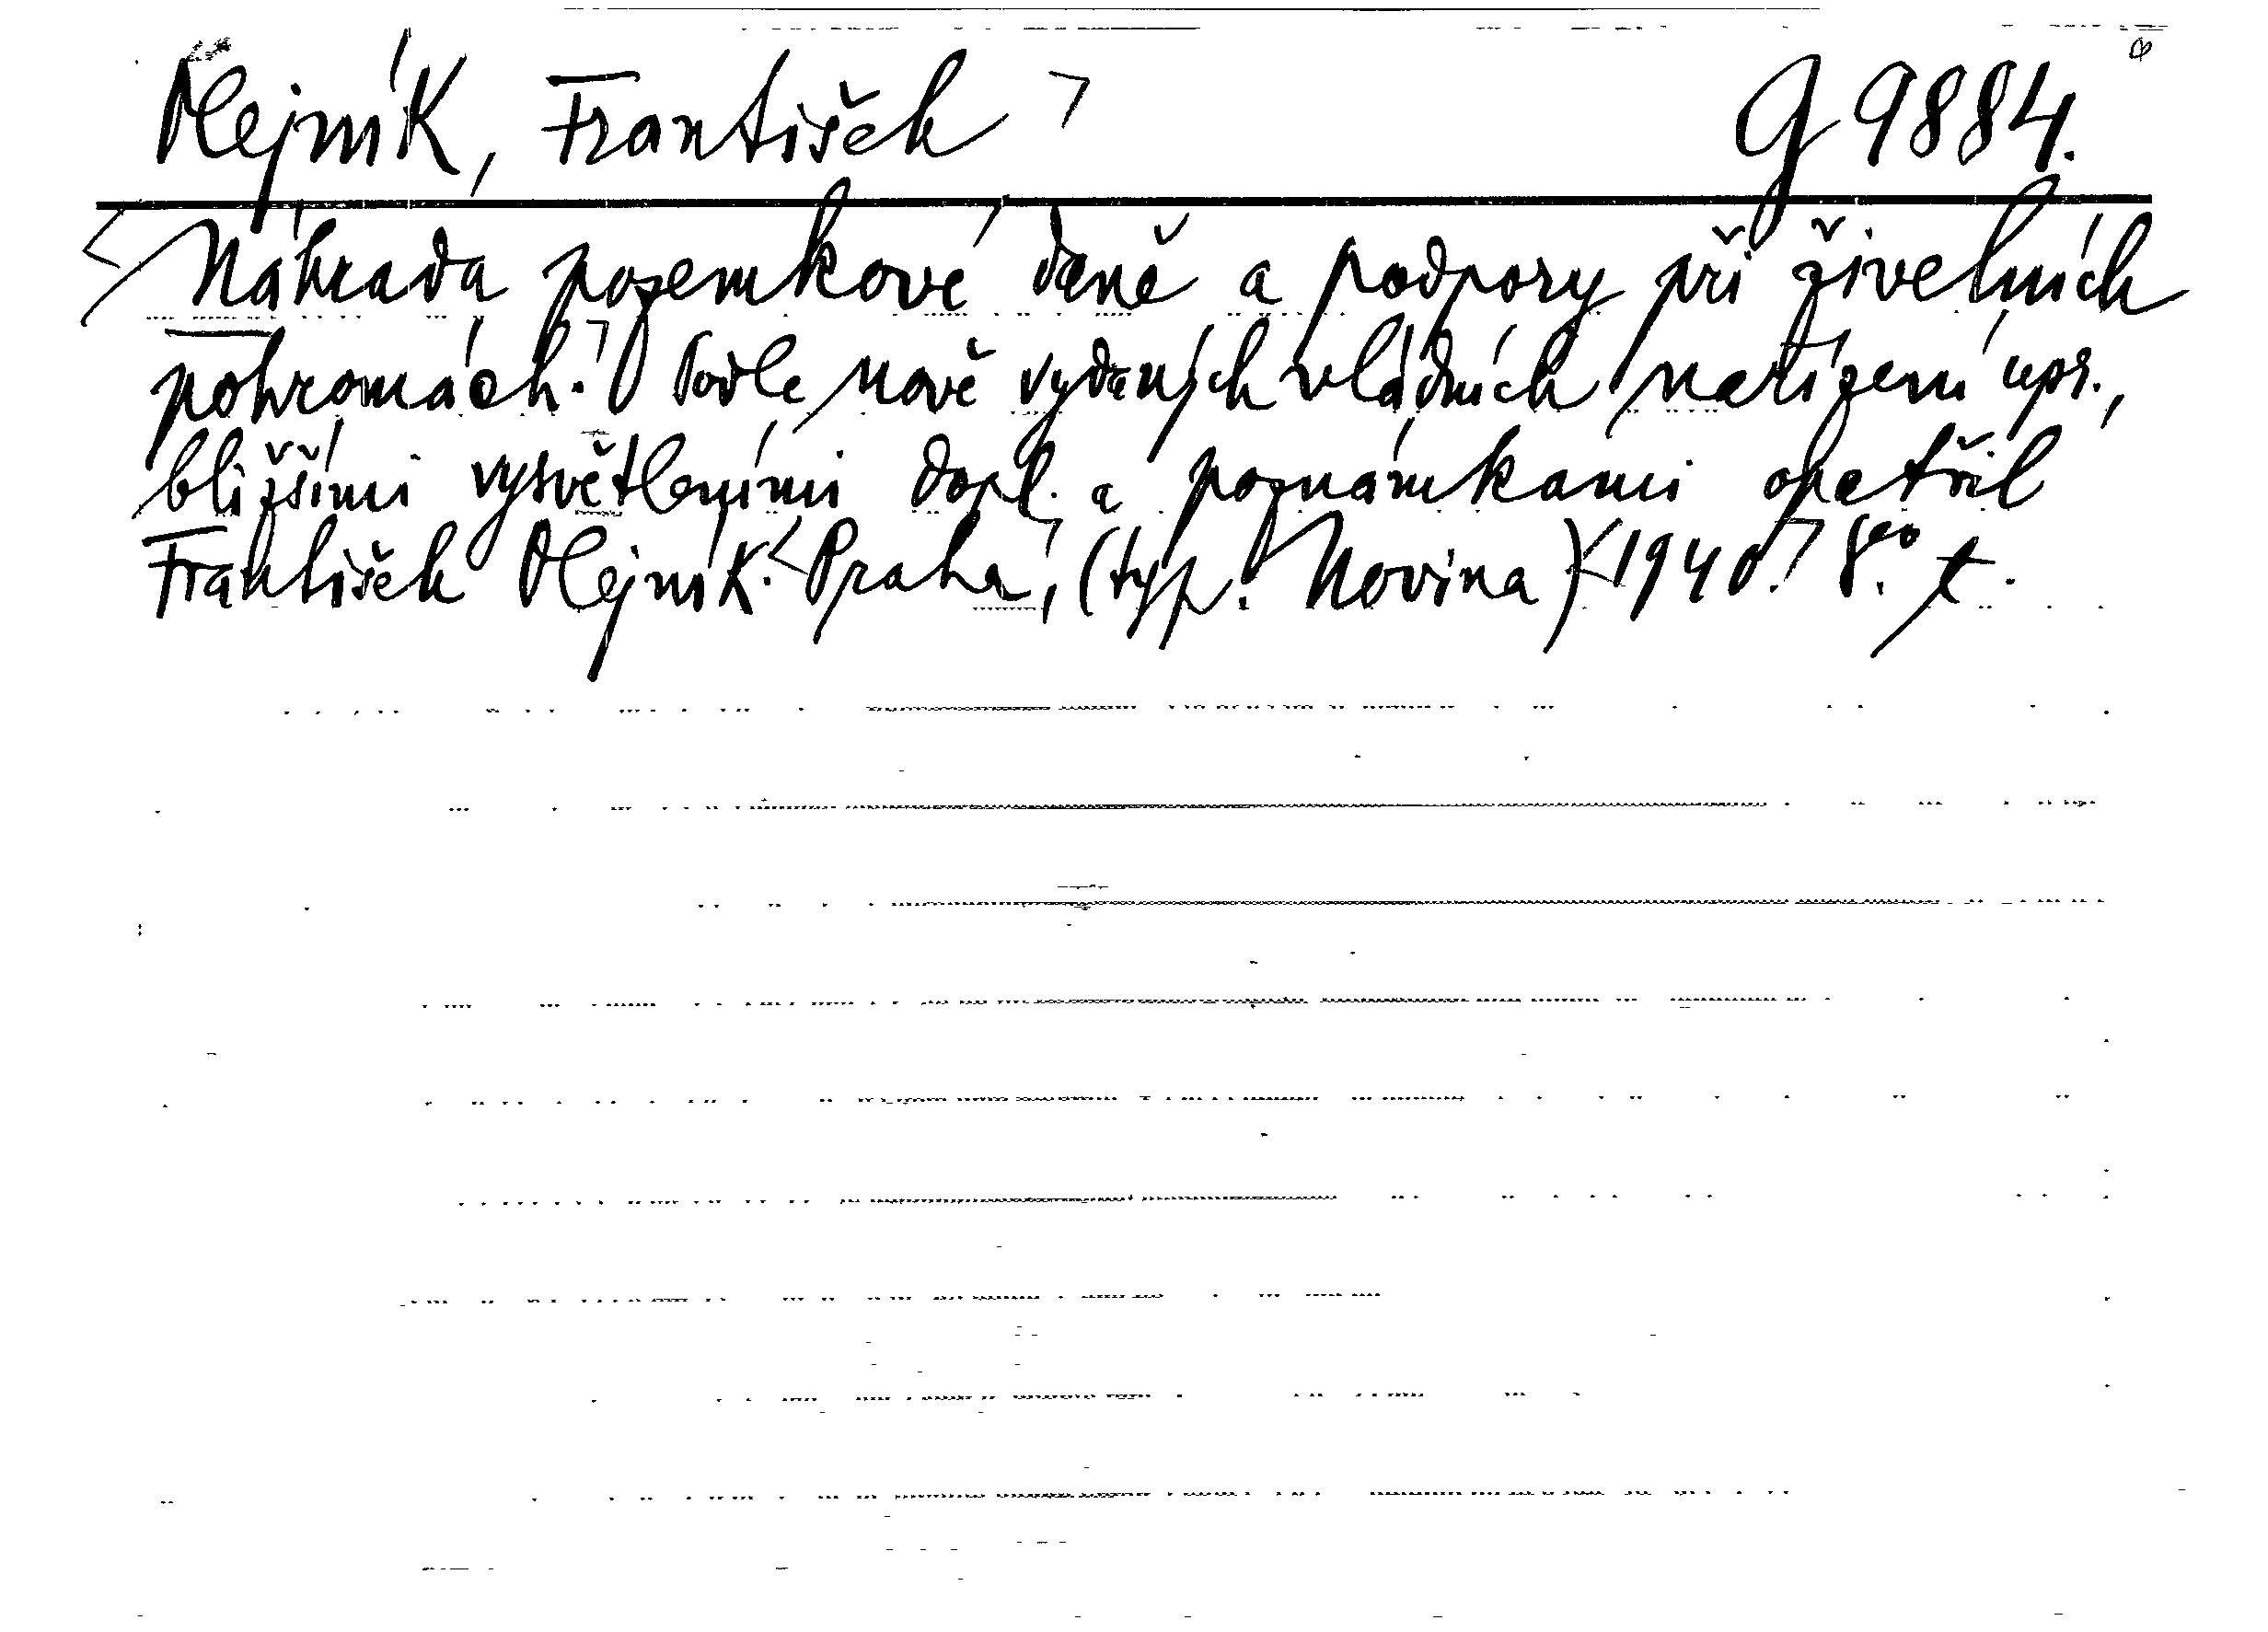 Olejník, František G 9884.
Náhrada pozemkové daně a podpory při živelních
pohromách. Podle nově vydaných vládních nařízení upr.,
bližšími vysvětleními dopl. a poznámkami opatřil
František Olejník. Praha, (typ. Novina) 1940. 8°. t.